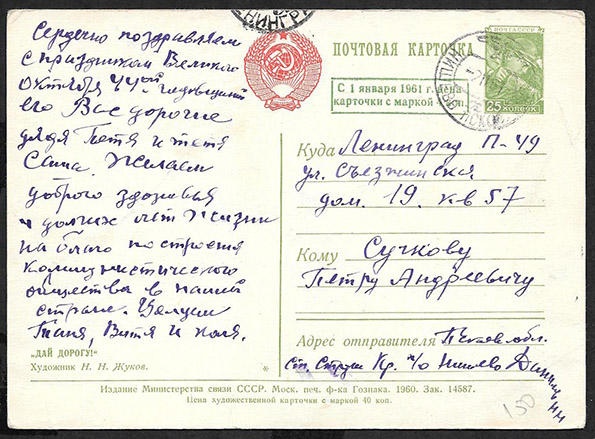 Сердечно поздравляем
с праздником Великого
Октября 44ой годовщиной
его Вас дорогие
дядя Петя и тетя
Саша. Желаем
доброго здоровья
и долгих лет жизни
на благо построения
коммунистического
общества в нашей
стране. Целуем
Таня, Витя и Коля.
„ДАЙ ДОРОГУ!"
Художник Н. Н. Жуков.
*
ПОЧТОВАЯ КАРТОЧКА
С 1 января 1961 г. цена
карточки с маркой
ПОЧТА СССР
25 КОПЕЕК
Куда Ленинград П-49
ул. Съезжинская
дом. 19. кв 57
Кому Сучкову
Петру Андреевичу
Адрес отправителя
Ст. Струги Кр. п/о
Издание Министерства связи СССР. Моск. печ. ф-ка Гознака. 1960. Зак. 14587.
Цена художественной карточки с маркой 40 коп.
150